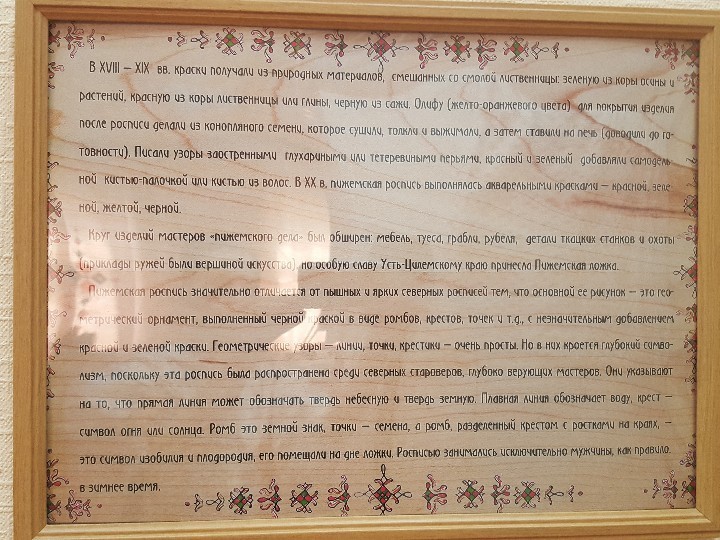 В XVIII – XIX вв. краски получали из природных материалов, смешанных со смолой лиственницы: зеленую из коры осины и
растений, красную из коры лиственницы или глины, черную из сажи. Олифу (желто-оранжевого цвета) для покрытия изделия
после росписи делали из конопляного семени, которое сушили, толкли и выжимали, а затем ставили на печь (доводили до го-
товности). Писали узоры заостренными глухариными или тетеревиными перьями, красный и зеленый добавляли самодель
ной кистью-палочкой или кистью из волос. В XX в. пижемская роспись выполнялась акварельными красками – красной, зеле
ной, желтой, черной.
Круг изделий мастеров «пижемского дела» был обширен: мебель, туеса, грабли, рубеля, детали ткацких станков и охоты
(приклады ружей были вершиной искусства), но особую славу Усть-Цилемскому краю принесла Пижемская ложка.
Пижемская роспись значительно отличается от пышных и ярких северных росписей тем, что основной ее рисунок – это гео-
метрический орнамент, выполненный черной краской в виде ромбов, крестов, точек и т.д., с незначительным добавлением
красной и зеленой краски. Геометрические узоры – линии, точки, крестики – очень просты. Но в них кроется глубокий симво-
лизм, поскольку эта роспись была распространена среди северных староверов, глубоко верующих мастеров. Они указывают
на то, что прямая линия может обозначать твердь небесную и твердь земную. Плавная линия обозначает воду, крест –
символ огня или солнца. Ромб это земной знак, точки – семена, а ромб, разделенный крестом с ростками на краях, –
это символ изобилия и плодородия, его помещали на дне ложки. Росписью занимались исключительно мужчины, как правило.
в зимнее время.